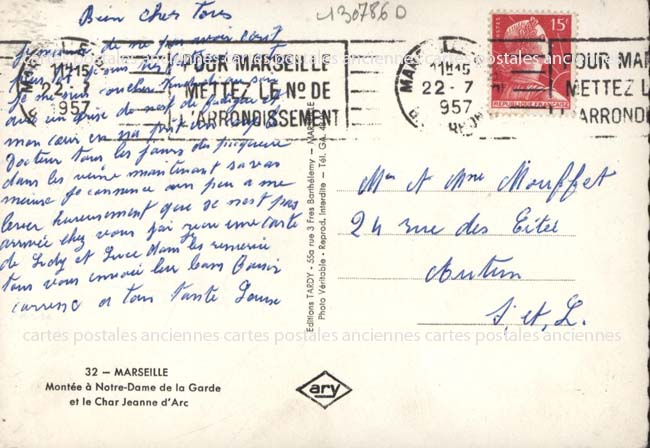 Bien chers tous
130786 D
je m'excuse de ne pas avoir écrit
je me suis couchée
avec une crise de nerf de fatigue et
mon cœur en a pris un coup
Docteur tous les jours des piqueure
dans les veine maintenant sa vas
mieux je commence un peu a me
lever heureusement que se n'est pas
arrivée chez vous j'ai reçu une carte
de Lidy et Luce dans les
tous vous envoie leur bons Baiser
caresse a tous Tante Louise
MARSEILLE
11H15
22-7
1957
POUR MARSEILLE
METTEZ LE No DE
L'ARRONDISSEMENT
MARSEILLE
11H15
22-7
1957
B. DU RHÔNE
15F
REPUBLIQUE FRANÇAISE
POUR MAR
METTEZ L
L'ARRONDI
Mr et Mme Mouffet
24 rue des
Autun
S. et L.
Editions TARDY - 55a rue 3 Fres Barthélemy - MARSEILLE - Tél. GA. 4
Photo Véritable - Reprod. Interdite
cartes postales anciennes cartes postales anciennes cartes postales anciennes
cartes postales anciennes cartes postales anciennes cartes postales anciennes
32 — MARSEILLE
Montée à Notre-Dame de la Garde
et le Char Jeanne d'Arc
ary